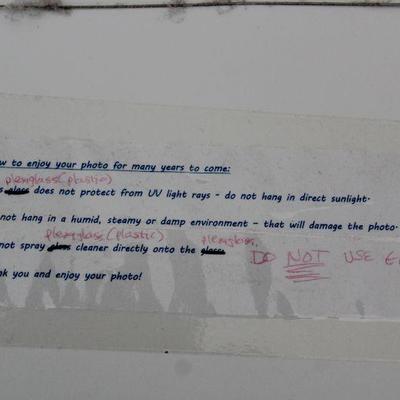 w to enjoy your photo for many years to come:
plexglass (plastic)
s glass does not protect from UV light rays - do not hang in direct sunlight.
not hang in a humid, steamy or damp environment - that will damage the photo.
plexglass (plastic) plexglass
not spray glass cleaner directly onto the glass. DO NOT USE
nk you and enjoy your photo!